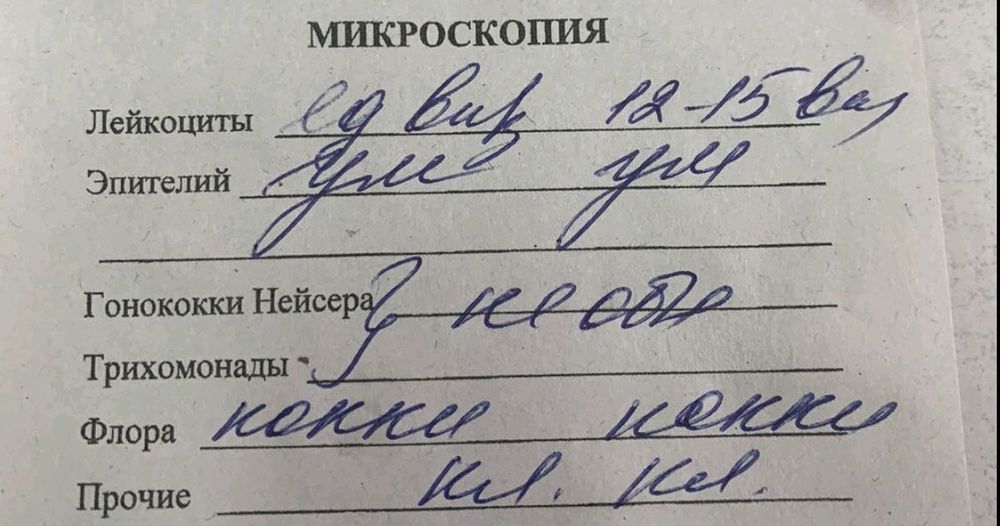 МИКРОСКОПИЯ
Лейкоциты ед в п/з 12-15 в п/з
Эпителий ум ум
Гонококки Нейсера не обн
Трихомонады
Флора кокки кокки
Прочие кл. кл.